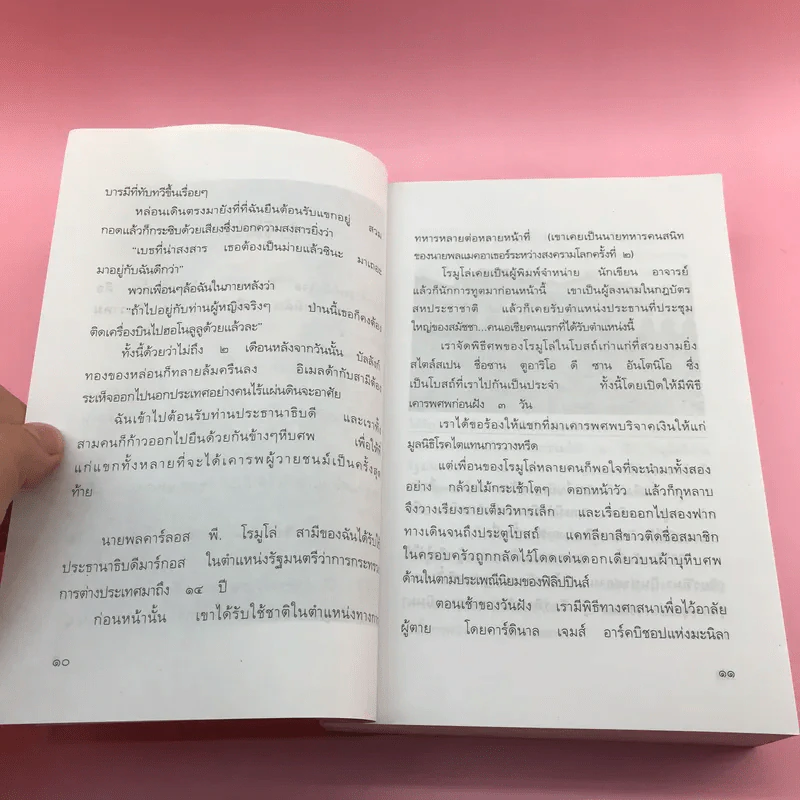 บารมีที่ทับทวีขึ้นเรื่อยๆ
หล่อนเดินตรงมายังที่ที่ฉันยืนต้อนรับแขกอยู่ สวม
กอดแล้วก็กระซิบด้วยเสียงซึ่งบอกความสงสารยิ่งว่า
“เบธที่น่าสงสาร เธอต้องเป็นม่ายแล้วซินะ มาเถอะ
มาอยู่กับฉันดีกว่า”
พวกเพื่อนๆล้อฉันในภายหลังว่า
“ถ้าไปอยู่กับท่านผู้หญิงจริงๆ ป่านนี้เธอก็คงต้อง
ติดเครื่องบินไปฮอโนลูลูด้วยแล้วละ”
ทั้งนี้ด้วยว่าไม่ถึง ๒ เดือนหลังจากวันนั้น บัลลังก์
ทองของหล่อนก็ทลายล้มครืนลง อิเมลด้ากับสามีต้อง
ระเห็จออกไปนอกประเทศอย่างคนไร้แผ่นดินจะอาศัย
ฉันเข้าไปต้อนรับท่านประธานาธิบดี และเราทั้ง
สามคนก็ก้าวออกไปยืนด้วยกันข้างๆหีบศพ เพื่อให้
แก่แขกทั้งหลายที่จะได้เคารพผู้วายชนม์เป็นครั้งสุด
ท้าย
นายพลคาร์ลอส พี. โรมูโล่ สามีของฉันได้รับใช้
ประธานาธิบดีมาร์กอส ในตำแหน่งรัฐมนตรีว่าการกระทรวง
การต่างประเทศมาถึง ๑๔ ปี
ก่อนหน้านั้น เขาได้รับใช้ชาติในตำแหน่งทางการ
๑๐
ทหารหลายต่อหลายหน้าที่ (เขาเคยเป็นนายทหารคนสนิท
ของนายพลแมคอาเธอร์ระหว่างสงครามโลกครั้งที่ ๒)
โรมูโล่เคยเป็นผู้พิมพ์จำหน่าย นักเขียน อาจารย์
แล้วก็นักการทูตมาก่อนหน้านี้ เขาเป็นผู้ลงนามในกฎบัตร
สหประชาชาติ แล้วก็เคยรับตำแหน่งประธานที่ประชุม
ใหญ่ของสมัชชา...คนเอเชียคนแรกที่ได้รับตำแหน่งนี้
เราจัดพิธีศพของโรมูโล่ในโบสถ์เก่าแก่ที่สวยงามยิ่ง
สไตล์สเปน ชื่อซาน ตูอาริโอ ดี ซาน อันโตนิโอ ซึ่ง
เป็นโบสถ์ที่เราไปกันเป็นประจำ ทั้งนี้โดยเปิดให้มีพิธี
เคารพศพก่อนฝัง ๓ วัน
เราได้ขอร้องให้แขกที่มาเคารพศพบริจาคเงินให้แก่
มูลนิธิโรคไตแทนการวางหรีด
แต่เพื่อนของโรมูโล่หลายคนก็พอใจที่จะนำมาทั้งสอง
อย่าง กล้วยไม้กระเช้าโตๆ ดอกหน้าวัว แล้วก็กุหลาบ
จึงวางเรียงรายเต็มวิหารเล็ก และเรื่อยออกไปสองฟาก
ทางเดินจนถึงประตูโบสถ์ แคทลียาสีขาวติดชื่อสมาชิก
ในครอบครัวถูกกลัดไว้โดดเด่นดอกเดียวบนผ้าบุหีบศพ
ด้านในตามประเพณีนิยมของฟิลิปปินส์
ตอนเช้าของวันฝัง เรามีพิธีทางศาสนาเพื่อไว้อาลัย
ผู้ตาย โดยคาร์ดินาล เจมส์ อาร์คบิชอปแห่งมะนิลา
๑๑